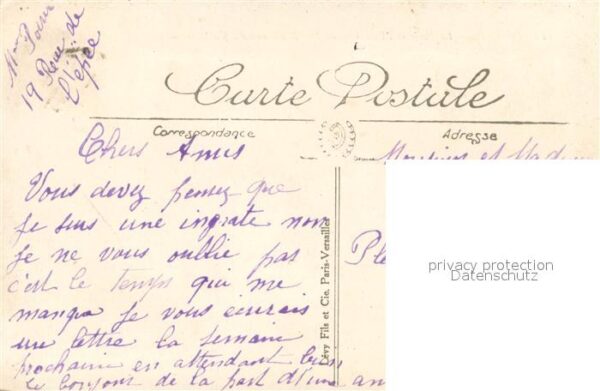 19 Rue de
l'épée
Carte Postale
Correspondance
Adresse
Chers Amis
Vous devez pensez que
je suis une ingrate non
je ne vous oublie pas
c'est le temps qui me
manque je vous écirais
une lettre la semaine
prochaine en attendant bien
le bonjour de la part d'une
Monsieur et Madame
Lévy Fils et Cie, Paris-Versailles
privacy protection
Datenschutz